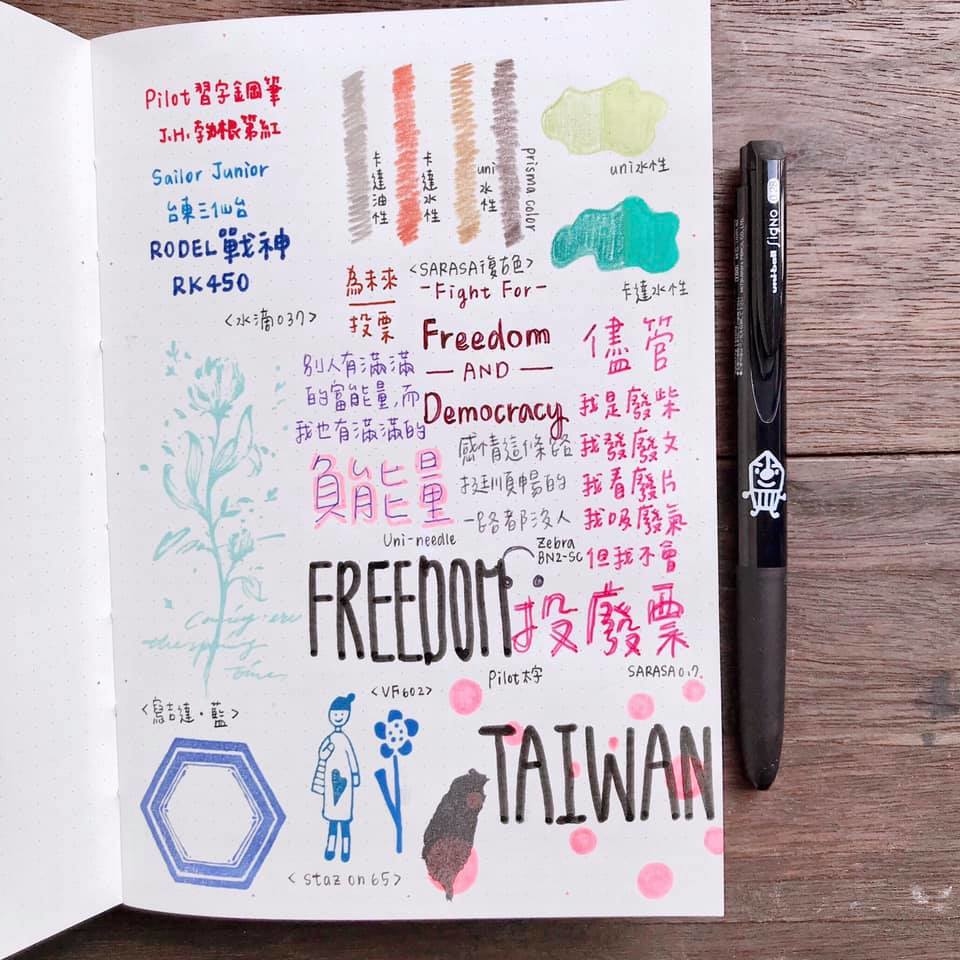 Pilot 習字鋼筆
J.H. 勃根第紅
Sailor Junior
台東三仙台
RODEL 戰神
RK450
卡達油性
卡達水性
uni水性
prisma color
uni水性
卡達水性
<水滴037>
為未來
投票
<SARASA復古色>
-Fight For-
Freedom
— AND —
Democracy
別人有滿滿
的富能量,而
我也有滿滿的
負能量
Uni-needle
感情這條路
挺順暢的
一路都沒人
Zebra
BN2-SC
儘管
我是廢柴
我發廢文
我看廢片
我吸廢氣
但我不會
投廢票
SARASA0.7
FREEDOM
Pilot太字
<寫吉達·藍>
<VF602>
<staz on 65>
TAIWAN